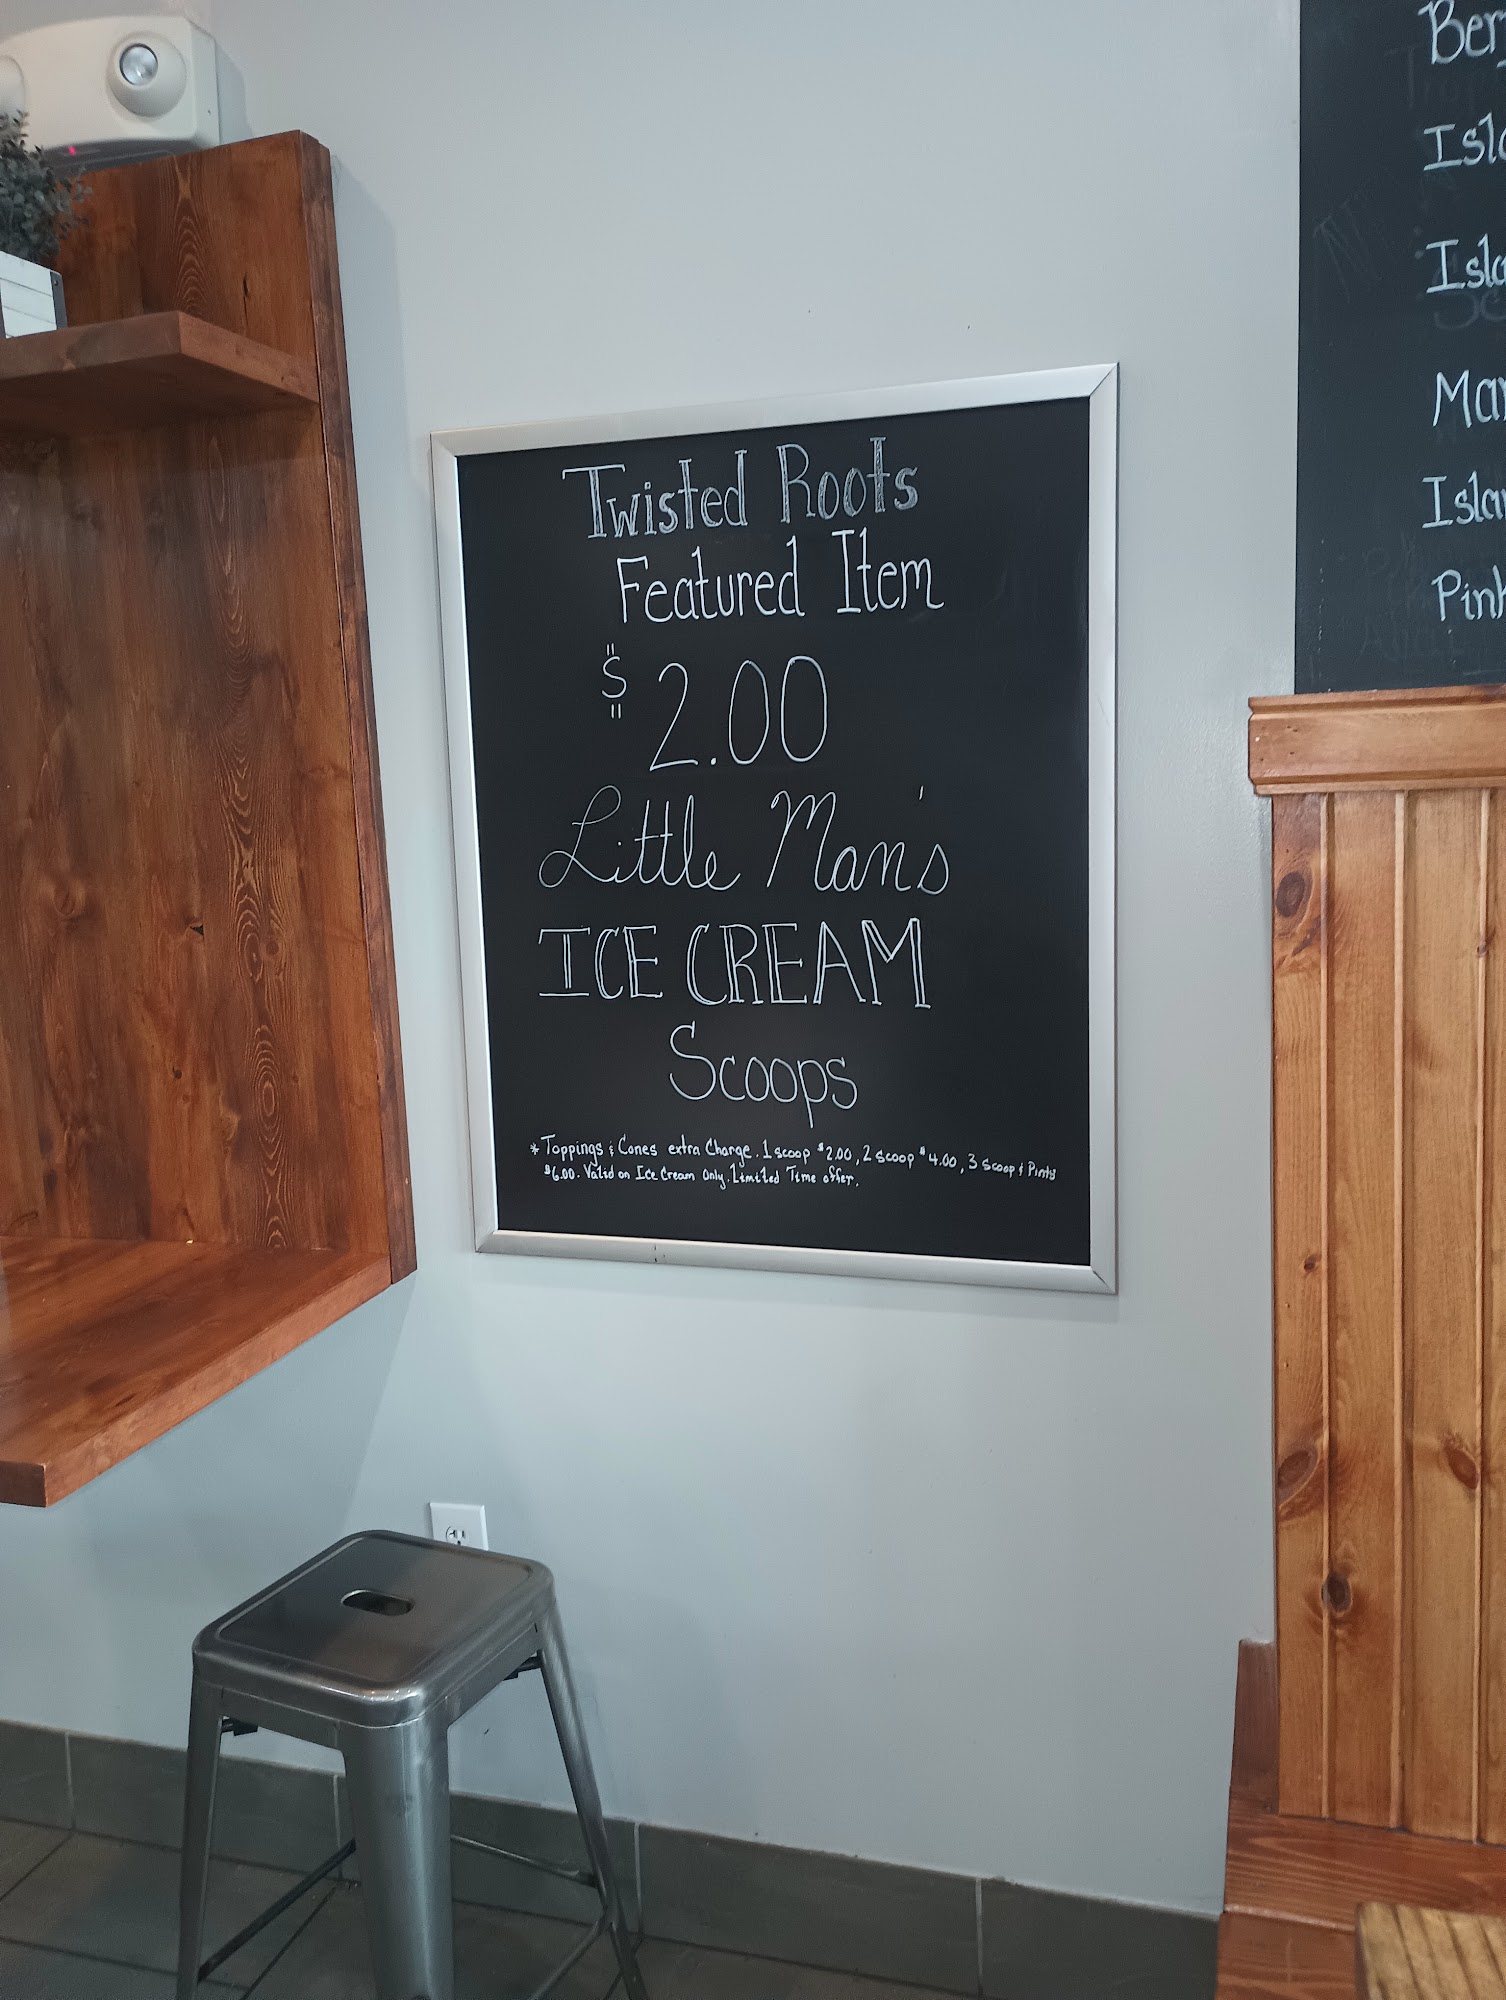 Twisted Roots
Featured Item
$2.00
Little Man's
ICE CREAM
Scoops
* Toppings & Cones extra Charge. 1 scoop $2.00, 2 scoop $4.00, 3 scoop & Pints
$6.00. Valid on Ice Cream Only. Limited Time offer.